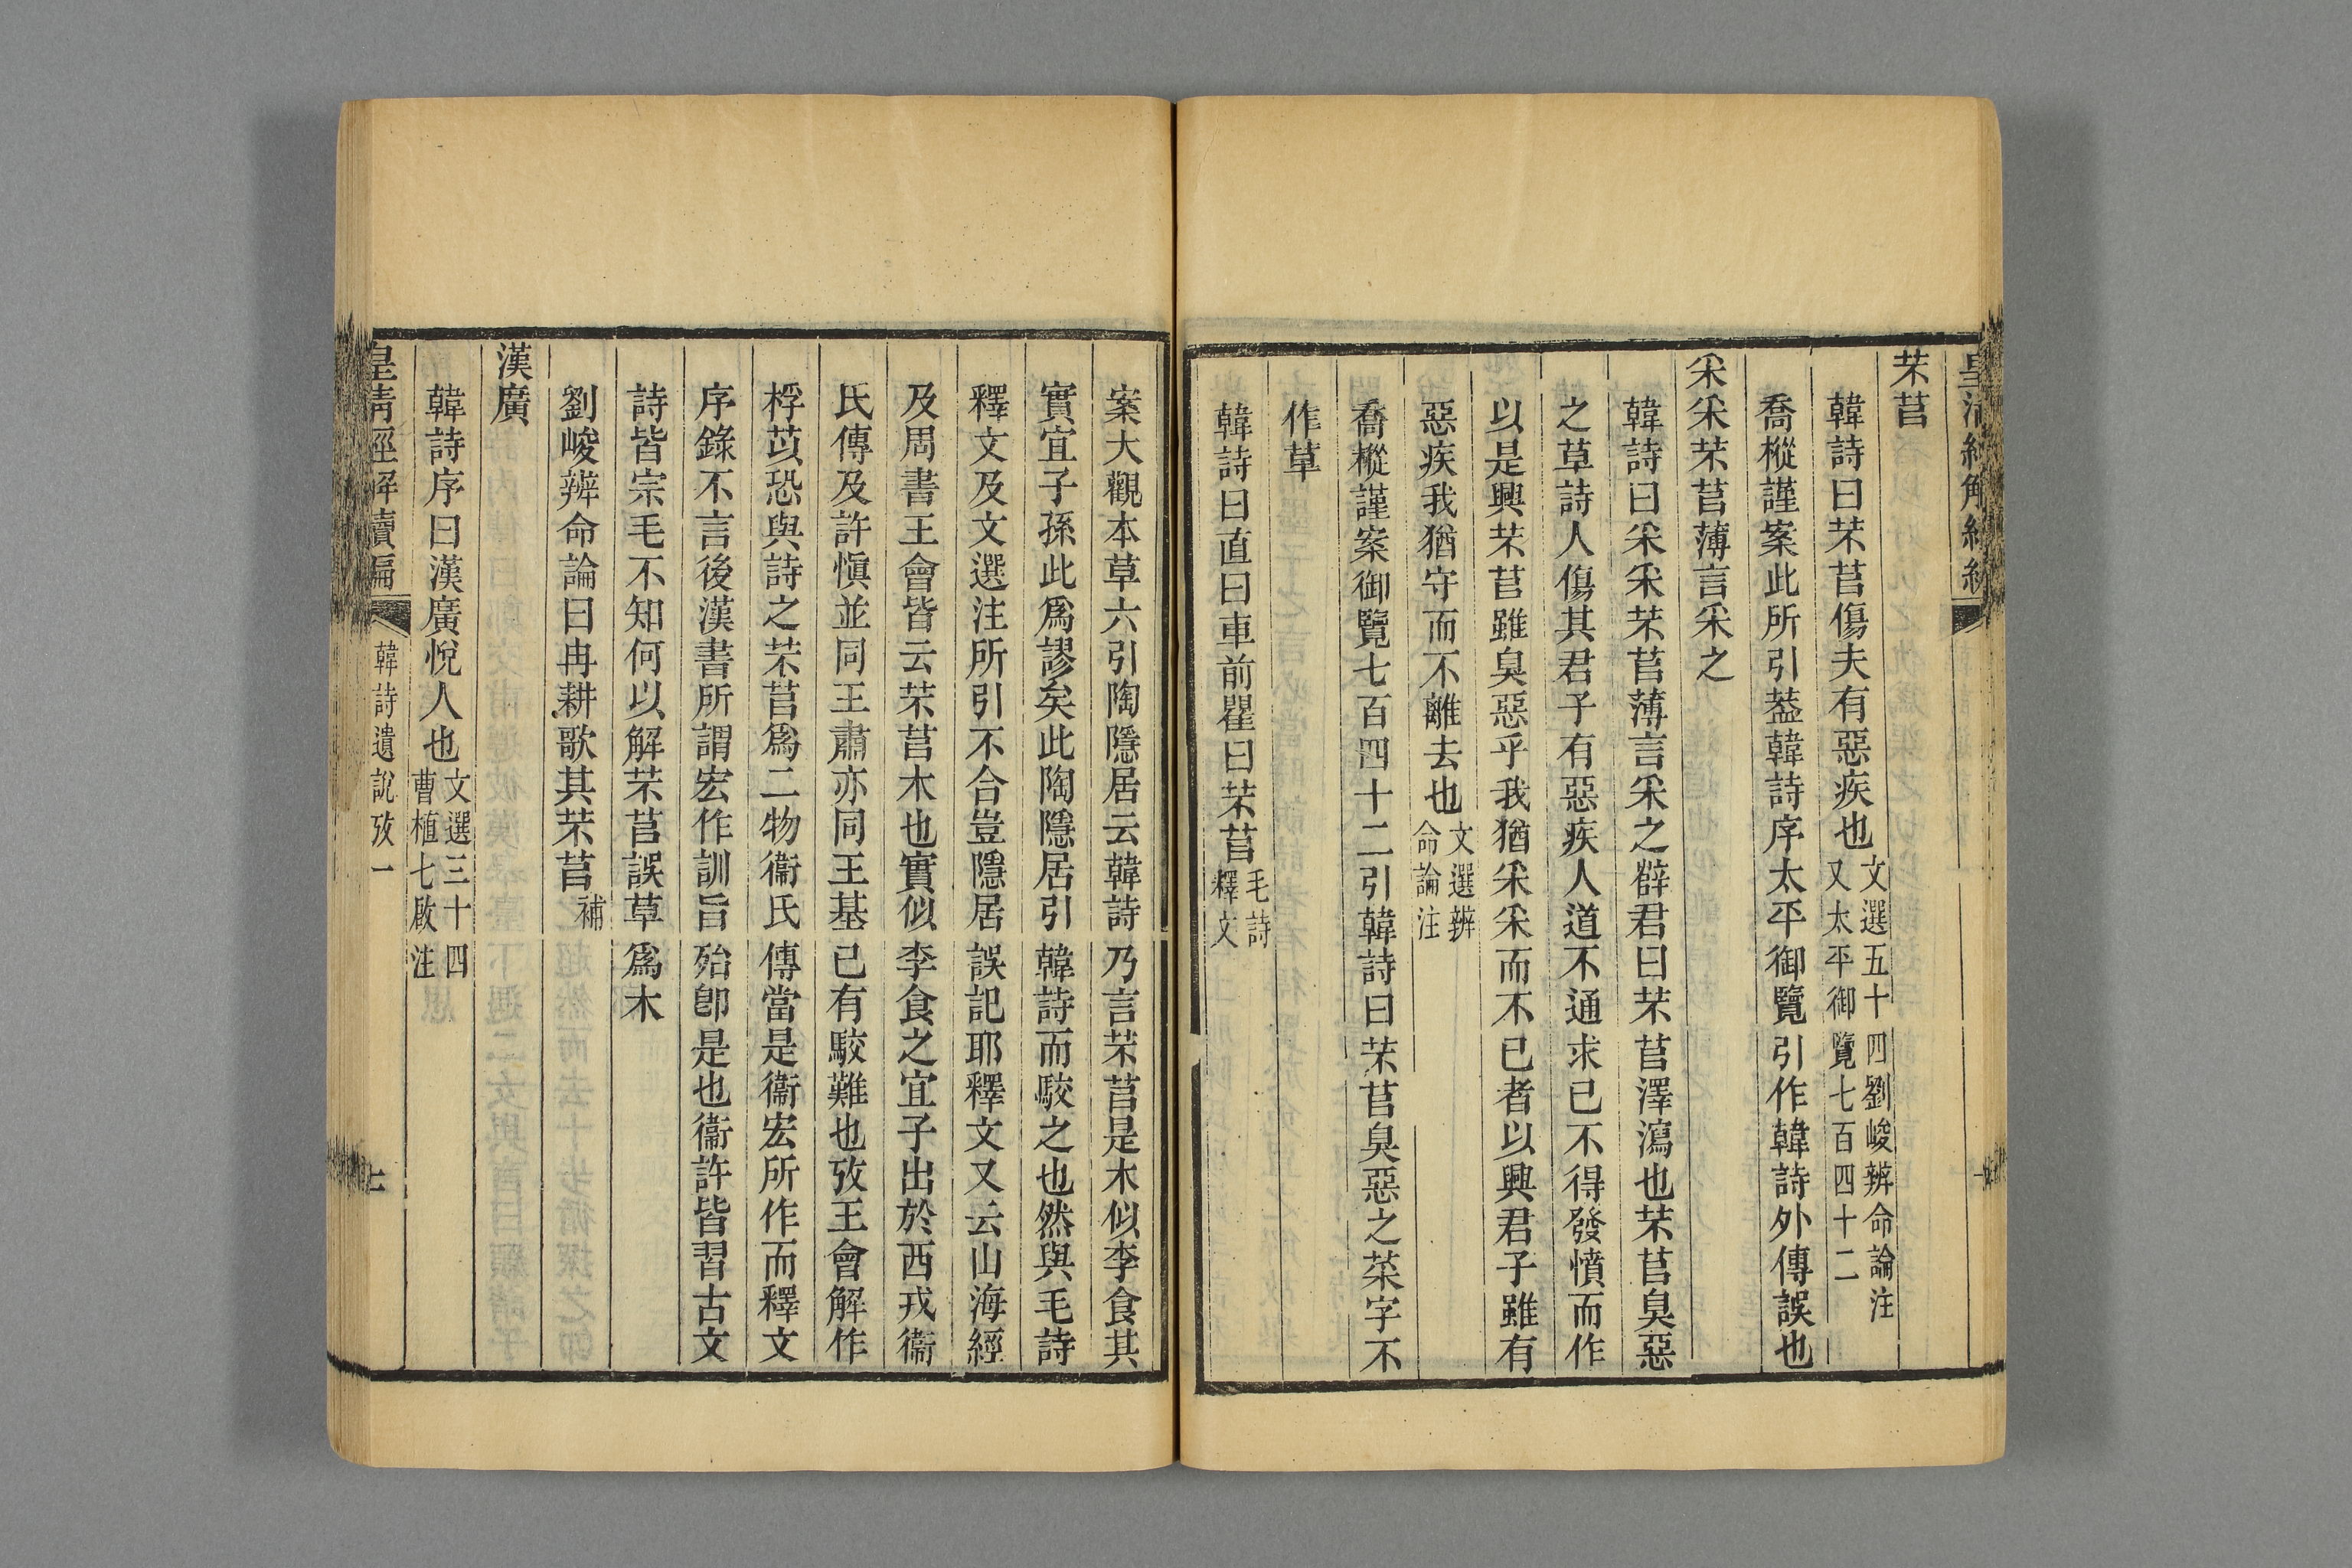 芣苢
韓詩曰芣苢傷夫有惡疾也文選五十四劉峻辨命論注又太平御覽七百四十二
喬樅謹案此所引葢韓詩序太平御覽引作韓詩外傳誤也
釆釆芣苢薄言釆之
韓詩曰釆釆芣苢薄言釆之辥君曰芣苢澤瀉也芣苢臭惡
之草詩人傷其君子有惡疾人道不通求已不得發憤而作
以是興芣苢雖臭惡乎我猶釆釆而不已者以興君子雖有
惡疾我猶守而不離去也文選辨命論注
喬樅謹案御覽七百四十二引韓詩曰芣苢臭惡之菜字不
作草
韓詩曰直曰車前瞿曰芣苢毛詩釋文
案大觀本草六引陶隱居云韓詩乃言芣苢是木似李食其
實宜子孫此爲謬矣此陶隱居引韓詩而駮之也然與毛詩
釋文及文選注所引不合豈隱居誤記耶釋文又云山海經
及周書王會皆云芣苢木也實似李食之宜子出於西戎衞
氏傳及許愼並同王肅亦同王基已有駮難也攷王會解作
桴苡恐與詩之芣苢爲二物衞氏傳當是衞宏所作而釋文
序錄不言後漢書所謂宏作訓旨殆卽是也衞許皆習古文
詩皆宗毛不知何以解芣苢誤草爲木
劉峻辨命論曰冉耕歌其芣苢補
漢廣
韓詩序曰漢廣悅人也文選三十四曹植七啟注
皇清經解續編 韓詩遺說攷一